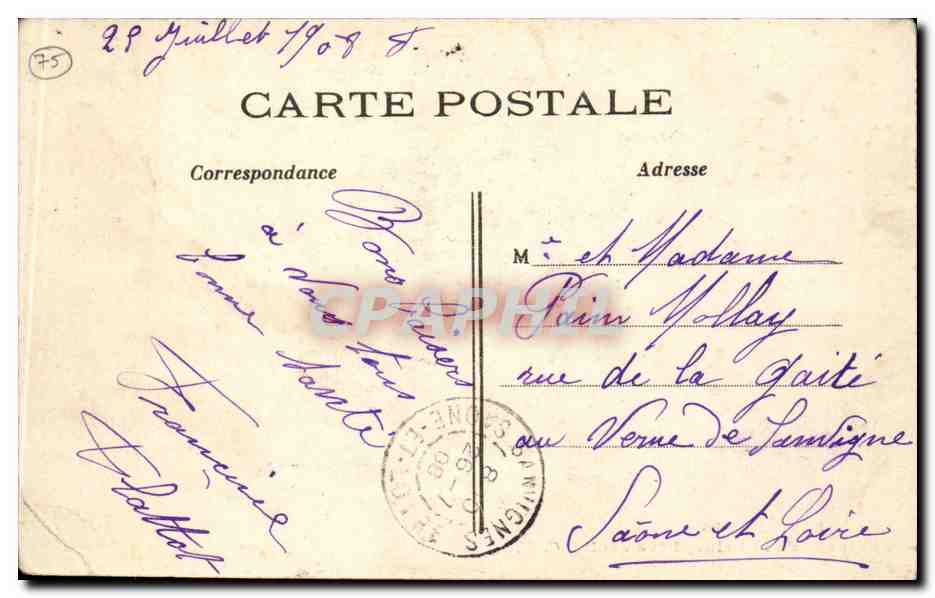 25 Juillet 1908
75
CARTE POSTALE
Correspondance
Adresse
Bons baisers
à vous tous
bonne santé
Francine
M.r et Madame
Pain Mollay
rue de la gaité
au Verne de Sanvigne
Saône et Loire
SANVIGNES
SAONE-ET-LOIRE
CPAPHIL